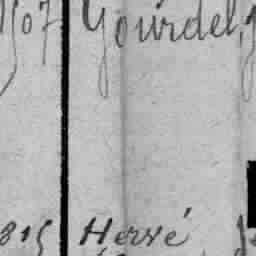 1507 Gourdel,
815 Hervé